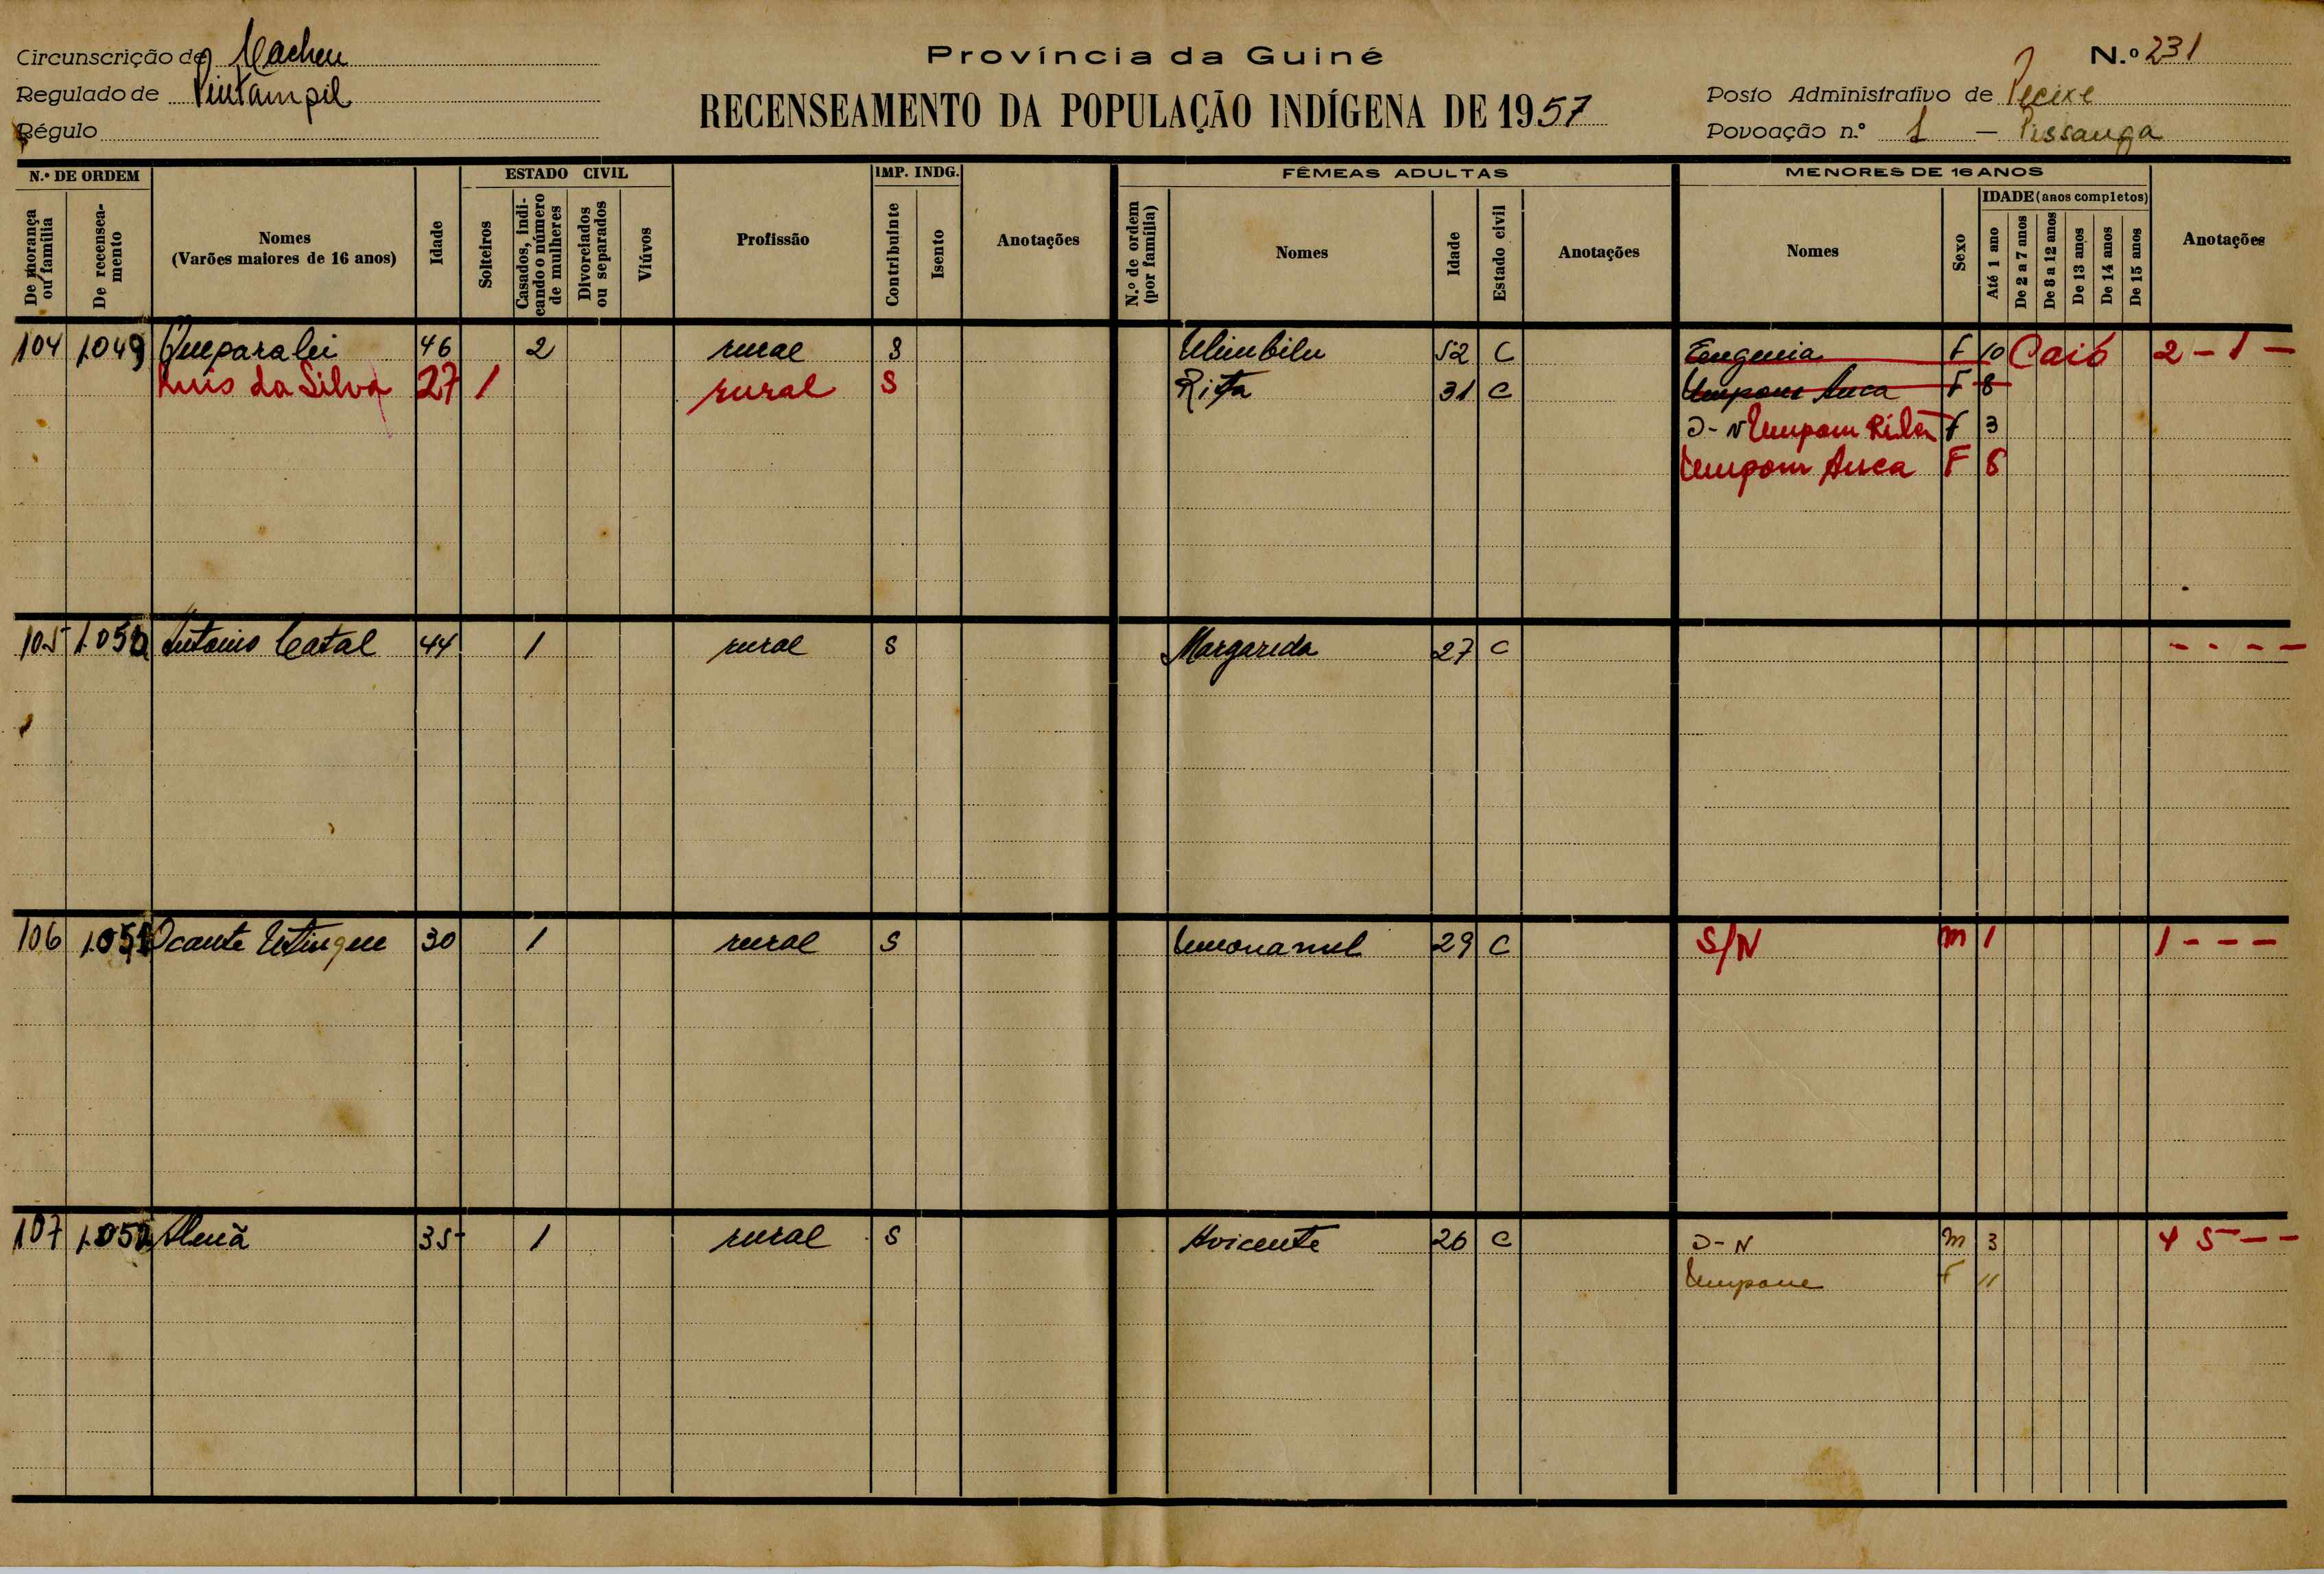 Circunscrição de Cacheu
Província da Guiné
N.º 231
Regulado de Pintampil
RECENSEAMENTO DA POPULAÇÃO INDÍGENA DE 1957
Posto Administrativo de Pecixe
Régulo
Povoação n.º 1 — Pissanga
N.º DE ORDEM
ESTADO CIVIL
IMP. INDG.
FÊMEAS ADULTAS
MENORES DE 16 ANOS
De morança ou família
De recenseamento
Nomes
(Varões maiores de 16 anos)
Idade
Solteiros
Casados, indicando o número de mulheres
Divorciados ou separados
Viúvos
Profissão
Contribuinte
Isento
Anotações
N.º de ordem (por família)
Nomes
Idade
Estado civil
Anotações
Nomes
Sexo
IDADE (anos completos)
Até 1 ano
De 2 a 7 anos
De 8 a 12 anos
De 13 anos
De 14 anos
De 15 anos
Anotações
104 1.049 Queparalei 46 2 rural S Ulimbilu 52 C Eugenia F 10 Caió 2 - 1 -
Luis da Silva 27 1 rural S Rita 31 C Umpom Anca F 8
D-N Umpom Rita F 3
Umpom Anca F 8
105 1.050 Antonio Catal 44 1 rural S Margarida 27 C - - - -
106 1.051 Ocante 30 1 rural S 29 C S/N m 1 1 - - -
107 1.052 35 1 rural S Avicente 26 C D-N m 3 4 5 - -
Umpone F "